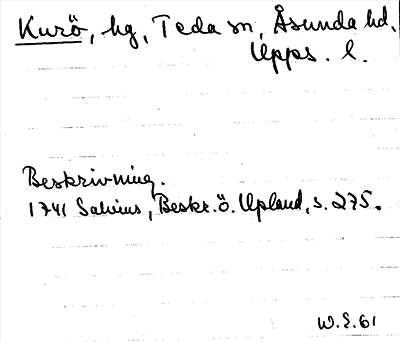 Kurö, hg, Teda sn, Åsunda hd,
Upps. l.
Beskrivning.
1741 Salvius, Beskr. ö. Upland, s. 275.
W.E. 61